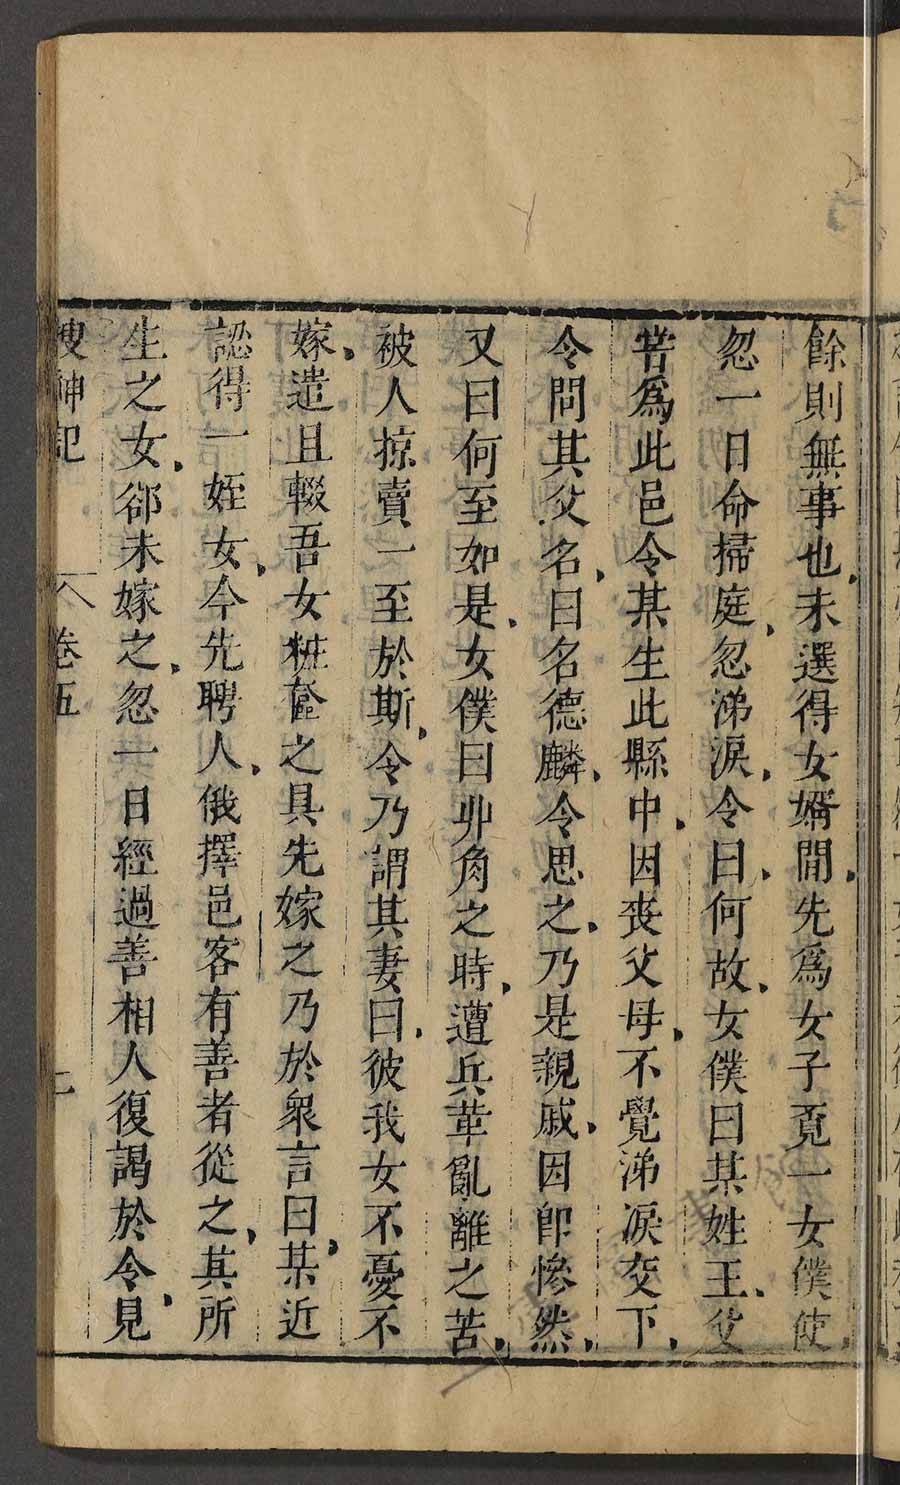 餘則無事也未選得女婿間先爲女子覔一女僕使
忽一日命掃庭忽涕淚令曰何故女僕曰某姓王父
甞爲此邑令某生此縣中因丧父母不覺涕淚交下
令問其父名曰名德麟令思之乃是親戚因即慘然
又曰何至如是女僕曰丱角之時遭兵革亂離之苦
被人掠賣一至於斯令乃謂其妻曰彼我女不憂不
嫁遣且輟吾女粧奩之具先嫁之乃於衆言曰某近
認得一姪女今先聘人俄擇邑客有善者從之其所
生之女郤未嫁之忽一日經過善相人復謁於令見
搜神記 卷五